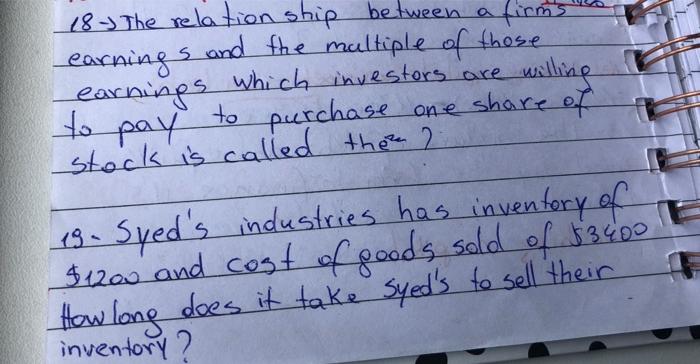 18→ The relation ship between a firms
earnings and the multiple of those
earnings which investors are willing
to pay to purchase one share of
stock is called the ?
19- Syed's industries has inventory of
$1200 and cost of goods sold of $3400
How long does it take Syed's to sell their
inventory ?